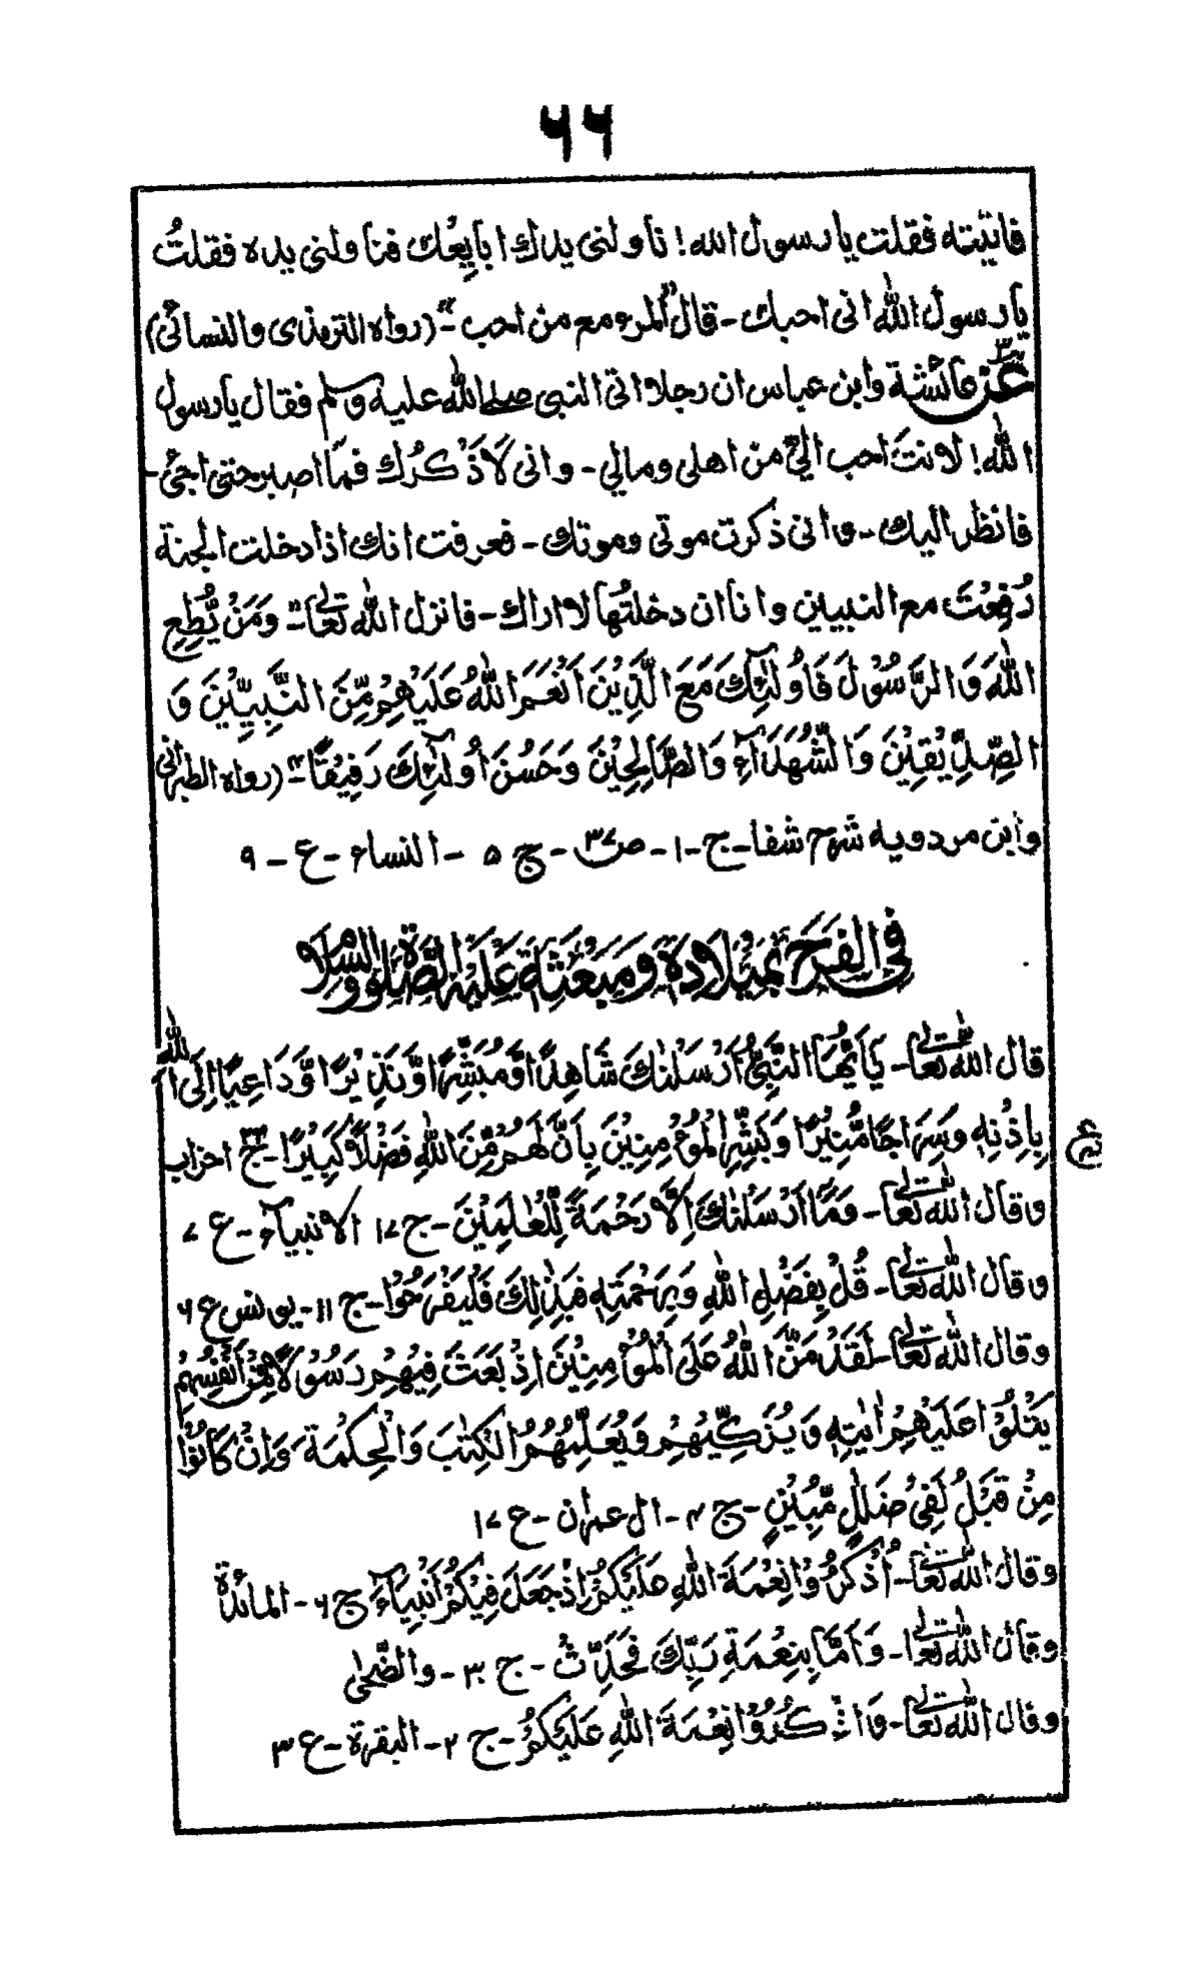 ۶۶
فاتیته فقلت یا رسول الله! ناولنی یدك ابایِعُك فناولنی یده فقلتُ
یا رسول الله انی احبك - قال "المرء مع من احب" - (رواه الترمذی والنسائی)
عن عائشة وابن عباس ان رجلا اتی النبی صلے الله علیه وسلم فقال یا رسول
الله! لانتَ احب الیّ من اهلی ومالي - وانی لَاَذْكُرُك فما اصبر حتی اجئ -
فانظر الیك - وانی ذكرت موتی وموتك - فعرفت انك اذا دخلت الجنة
رُفِعْتَ مع النبیین وانا ان دخلتُها لا اراك - فانزل الله تعالٰی - "وَمَنْ یُّطِعِ
اللهَ وَالرَّسُوْلَ فَاُولٰٓئِكَ مَعَ الَّذِیْنَ اَنْعَمَ اللهُ عَلَیْهِمْ مِّنَ النَّبِیّٖنَ وَ
الصِّدِّیْقِیْنَ وَالشُّهَدَآءِ وَالصّٰلِحِیْنَ وَحَسُنَ اُولٰٓئِكَ رَفِیْقًا" - (رواه الطبرانی
وابن مردویه شرح شفا - ج - ۱ - ص ۳۷ - ج ۵ - النساء - ع - ۹
فی الفَرَحِ بِمِیْلَادِهٖ وَمَبْعَثِهٖ عَلَیْهِ الصَّلٰوةُ وَالسَّلَام
قال الله تعالٰی - یٰٓاَیُّهَا النَّبِیُّ اَرْسَلْنٰكَ شَاهِدًا وَّمُبَشِّرًا وَّنَذِیْرًا وَّدَاعِیًا اِلَی الله
بِاِذْنِهٖ وَسِرَاجًا مُّنِیْرًا وَبَشِّرِ الْمُؤْمِنِیْنَ بِاَنَّ لَهُمْ مِّنَ اللهِ فَضْلًا كَبِیْرًا - ج ۲۲ احزاب
ع
وقال الله تعالٰی - وَمَآ اَرْسَلْنٰكَ اِلَّا رَحْمَةً لِّلْعٰلَمِیْنَ - ج ۱۷ الانبیآء - ع ۷
وقال الله تعالٰی - قُلْ بِفَضْلِ اللهِ وَبِرَحْمَتِهٖ فَبِذٰلِكَ فَلْیَفْرَحُوْا - ج ۱۱ - یونس ع ۶
وقال الله تعالٰی - لَقَدْ مَنَّ اللهُ عَلَی الْمُؤْمِنِیْنَ اِذْ بَعَثَ فِیْهِمْ رَسُوْلًا مِّنْ اَنْفُسِهِمْ
یَتْلُوْا عَلَیْهِمْ اٰیٰتِهٖ وَیُزَكِّیْهِمْ وَیُعَلِّمُهُمُ الْكِتٰبَ وَالْحِكْمَةَ وَاِنْ كَانُوْا
مِنْ قَبْلُ لَفِیْ ضَلٰلٍ مُّبِیْنٍ - ج ۴ - ال عمران - ع ۱۷
وقال الله تعالٰی - اُذْكُرُوْا نِعْمَةَ اللهِ عَلَیْكُمْ اِذْ جَعَلَ فِیْكُمْ اَنْبِیَآءَ ج ۶ - المائدة
وقال الله تعالٰی - وَاَمَّا بِنِعْمَةِ رَبِّكَ فَحَدِّثْ - ج ۳۰ - والضُّحٰی
وقال الله تعالٰی - وَاذْكُرُوْا نِعْمَةَ اللهِ عَلَیْكُمْ - ج ۲ - البقرة - ع ۳